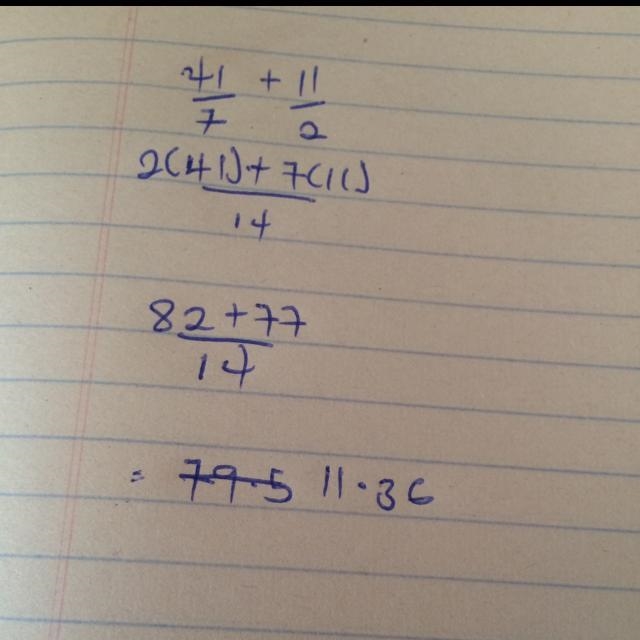 41 + 11
7 2
2(41) + 7(11)
14
82 + 77
14
= 79.5 11.36